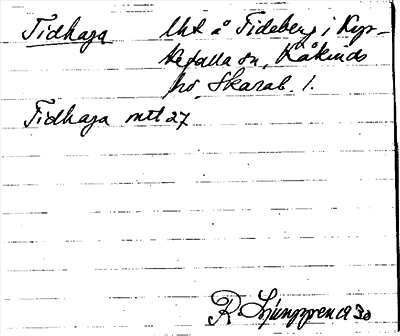 Tidhaga Uht å Tideberg i Kyr-
kefalla sn, Kåkinds
hd, Skarab. l.
Tidhaga mtl 27
R Ljunggren 1930